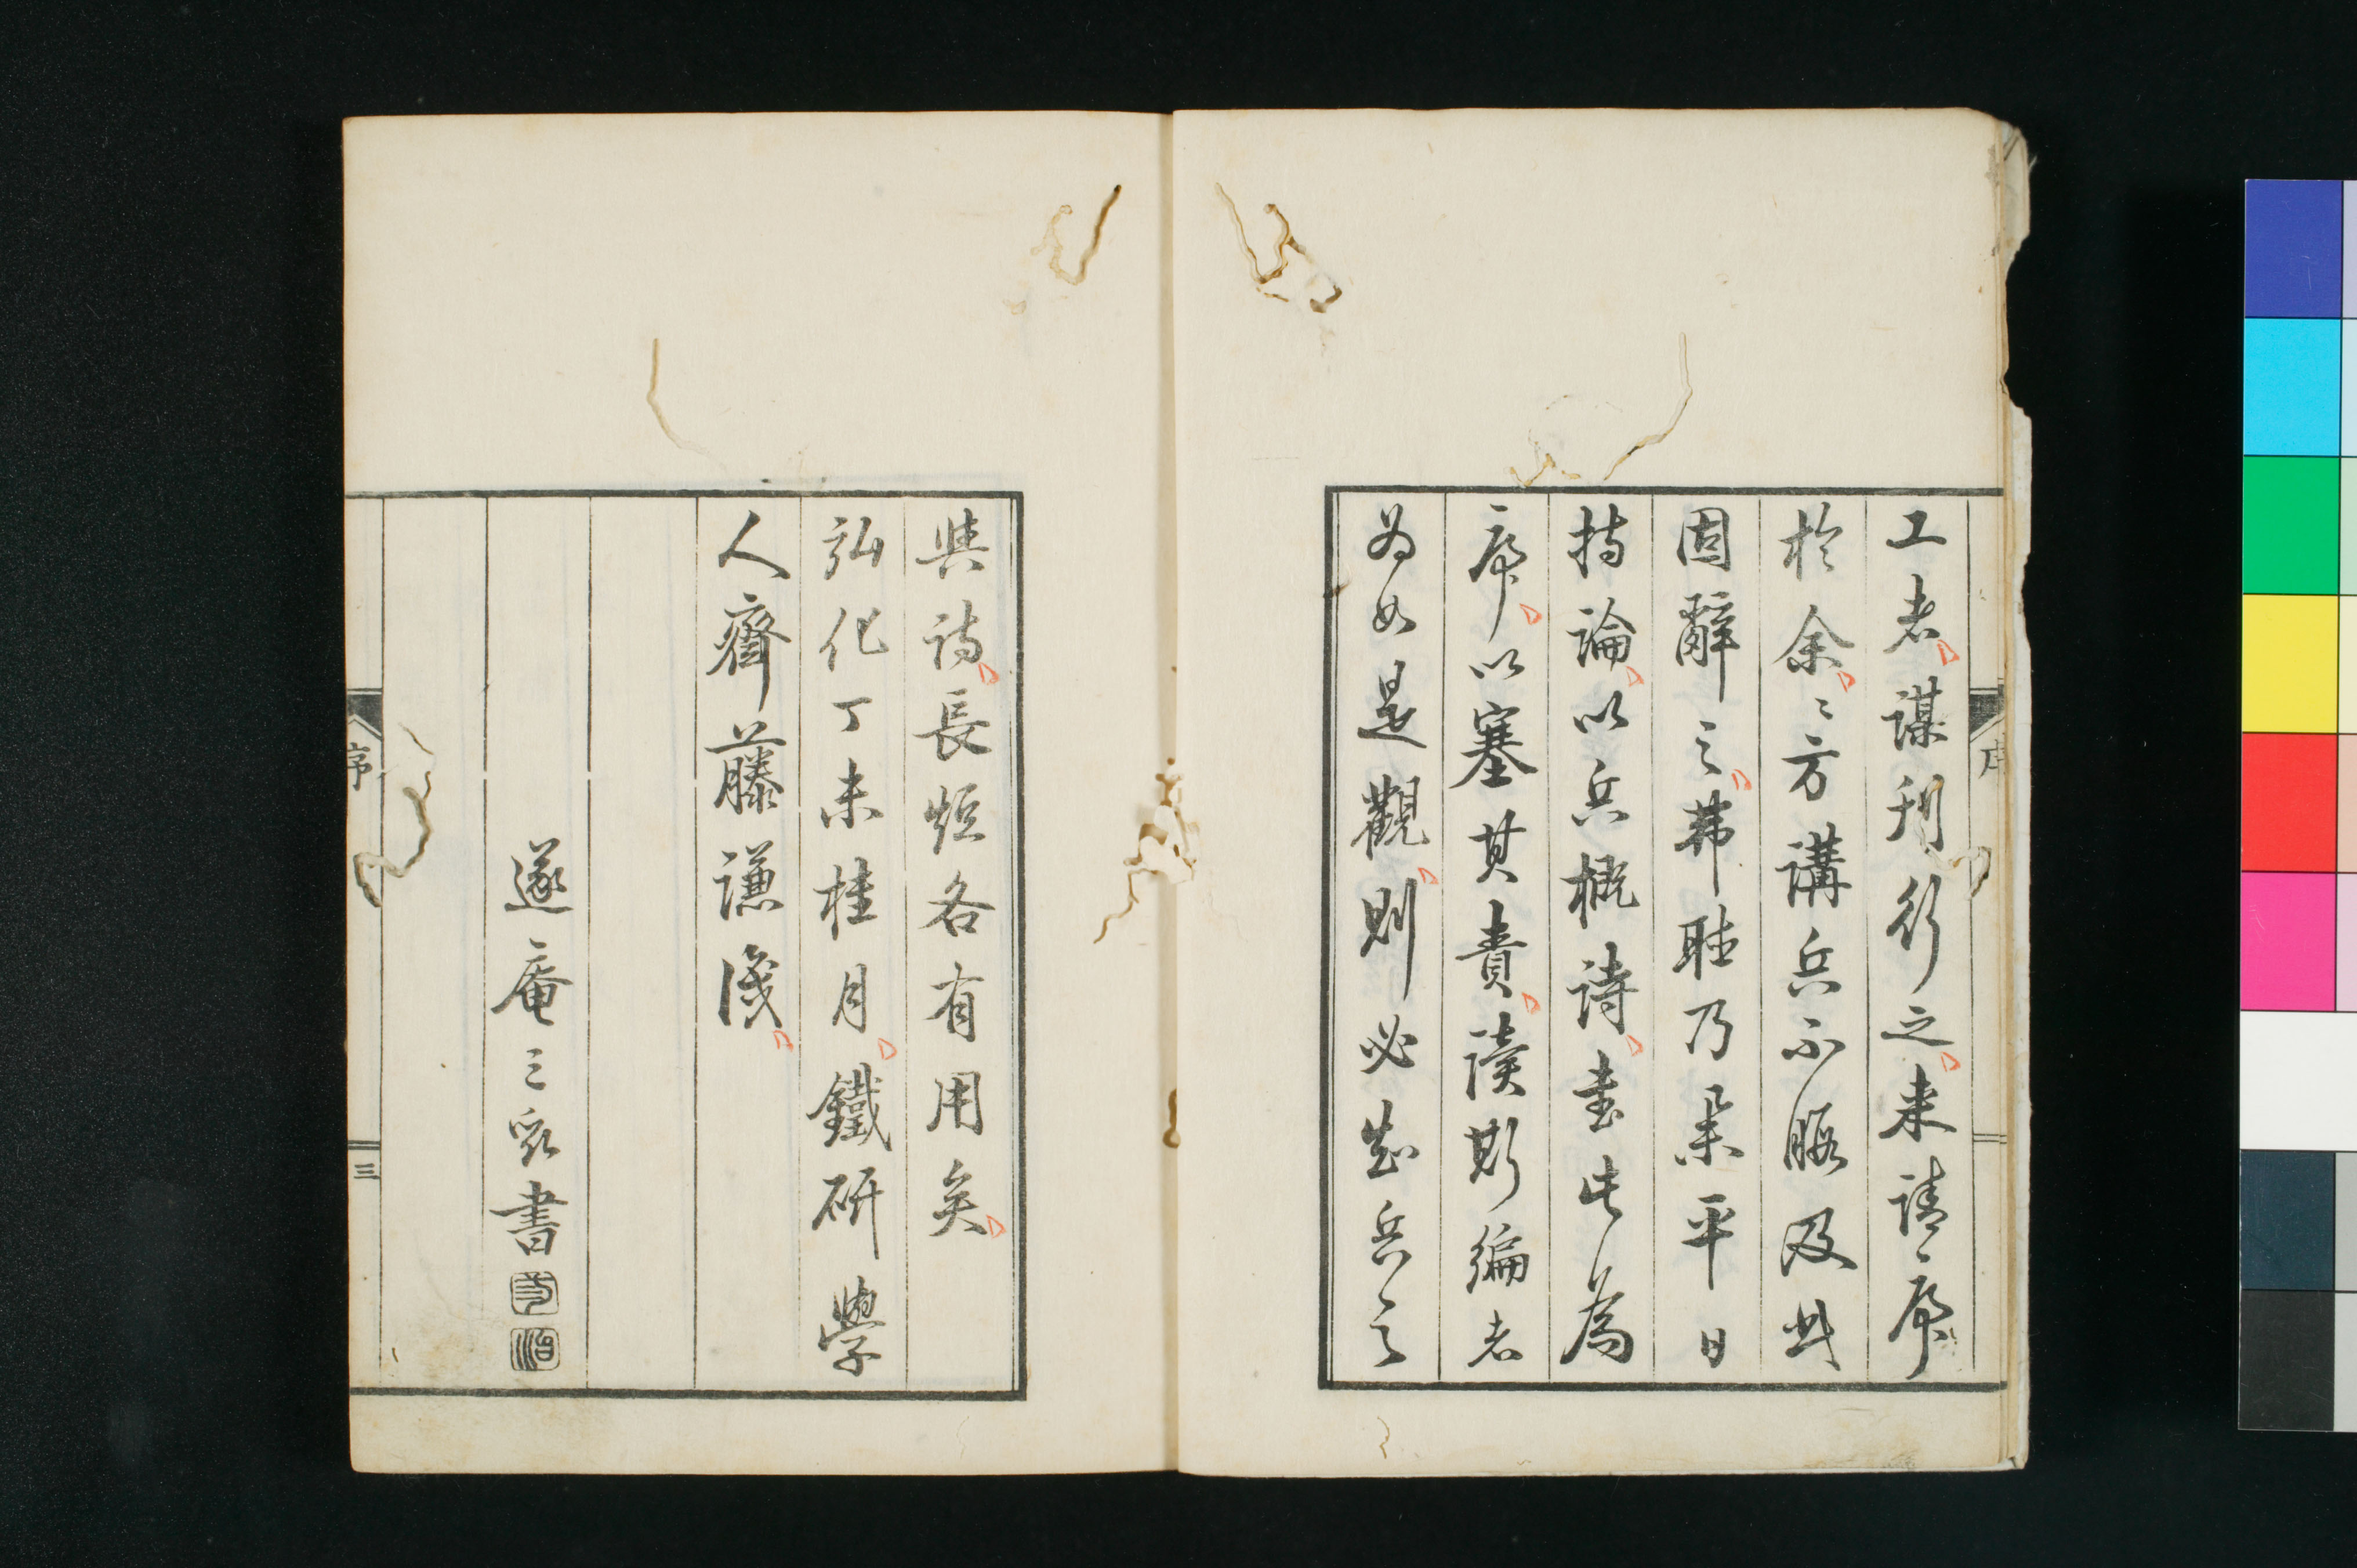 工者謀刊行之來請序
於余〻方講兵不暇及此
固辭之弗聴乃舉平日
持論以兵概詩書此為
序以塞其責讀斯編者
為如是觀則必知兵之
序
與詩長短各有用矣
弘化丁未桂月鐵研學
人齊藤謙識
遂庵三書
序
三